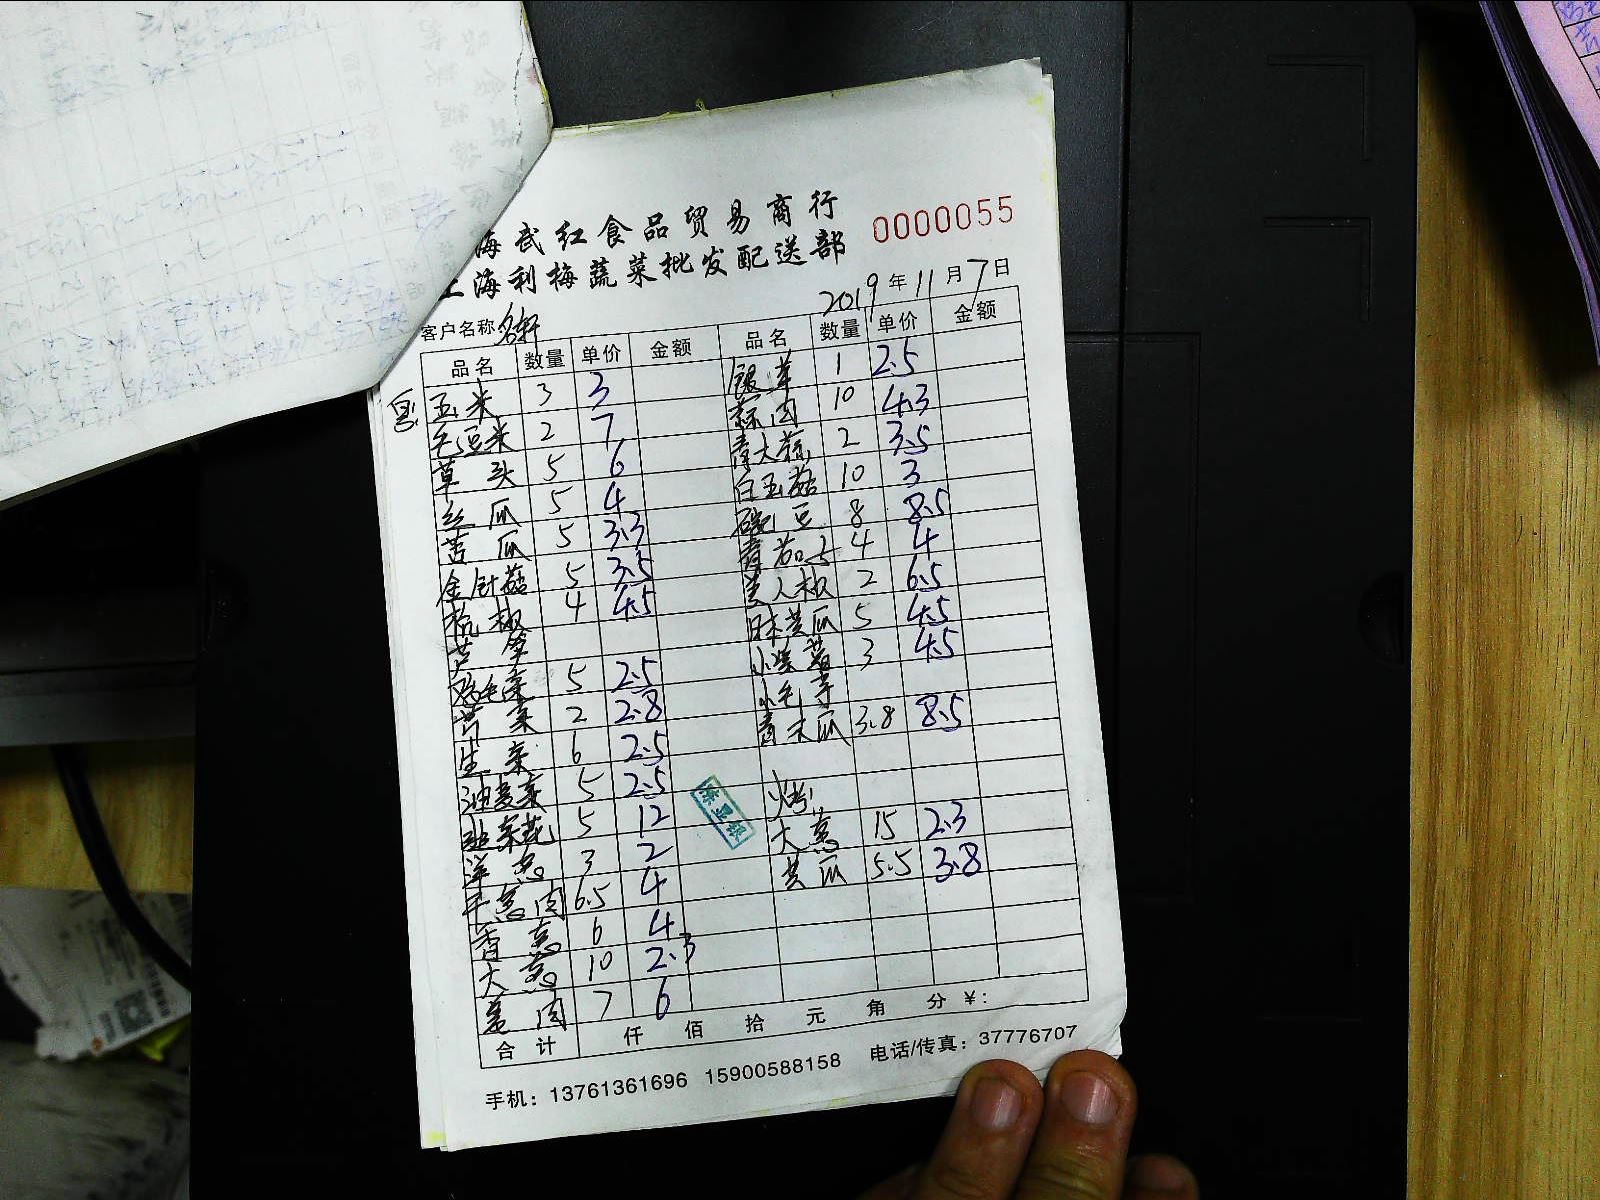 海武红食品贸易商行
上海利梅蔬菜批发配送部
0000055
2019年11月7日
客户名称 名轩
品名 数量 单价 金额 品名 数量 单价 金额
玉米 3 3 银芽 1 2.5
毛豆米 2 7 蒜肉 10 4.3
草头 5 6 青大蒜 2 3.5
丝瓜 5 4 白玉菇 10 3
苦瓜 5 3.3 豌豆 8 8.5
金针菇 5 3.5 青茄子 4 4
杭椒 4 4.5 美人椒 2 6.5
芦笋 日本黄瓜 5 4.5
鸡毛菜 5 2.5 小紫薯 3 4.5
芹菜 2 2.8 小毛芋
生菜 6 2.5 青木瓜 3.8 8.5
油麦菜 5 2.5
韭菜花 5 12 烤
洋葱 3 2 大葱 15 2.3
干葱肉 6.5 4 黄瓜 5.5 3.8
香葱 6 4
大葱 10 2.3
姜肉 7 6
合计 仟 佰 拾 元 角 分 ¥:
手机：13761361696 15900588158 电话/传真：37776707